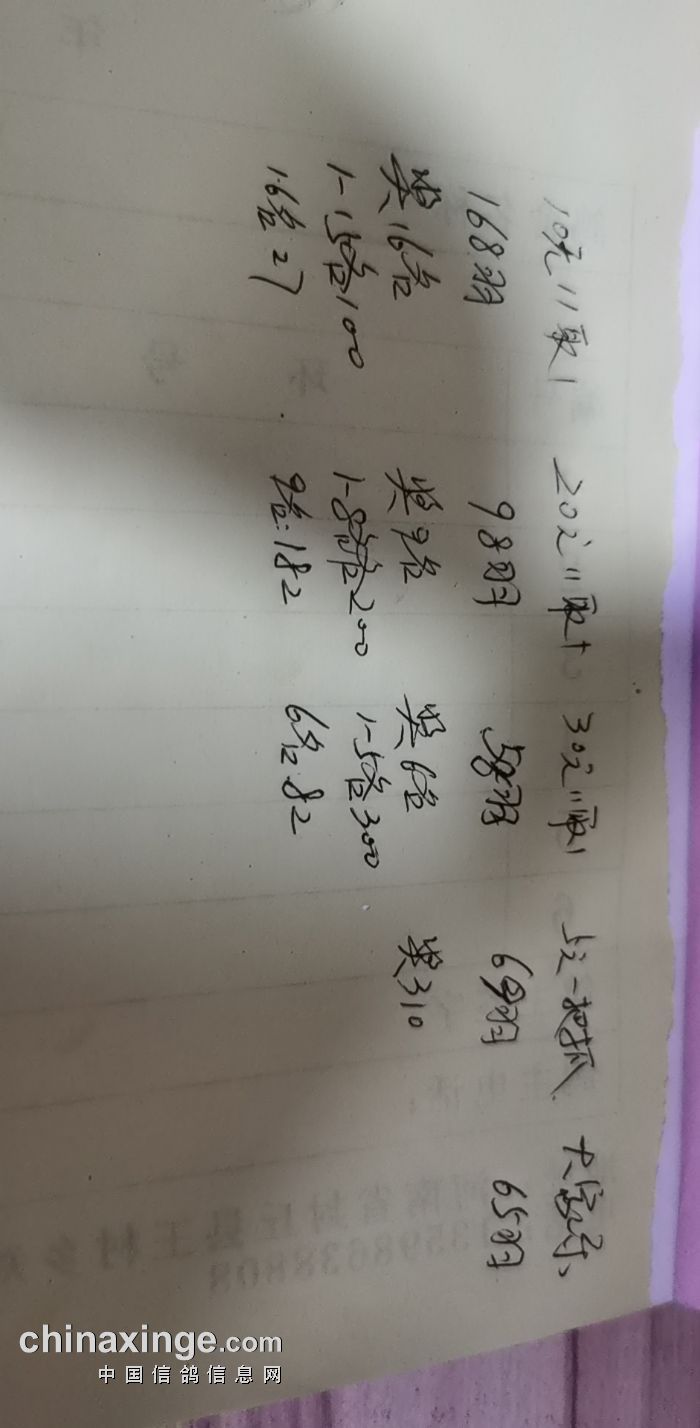 10元11取1
168羽
奖16名
1-15名100
16名:27
20元11取1
98羽
奖9名
1-8名200
9名:182
30元11取1
58羽
奖6名
1-5名300
6名:82
5元一把抓
69羽
奖310
65羽
chinaxinge.com
中国信鸽信息网